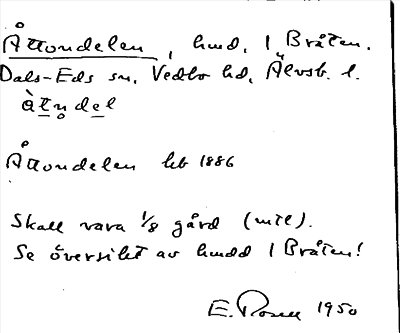 Åttondelen, hmd. 1 Bråten.
Dals-Eds sn, Vedbo hd, Älvsb. l.
àtndel
Åttondelen hb 1886
Skall vara 1/8 gård (mtl).
Se översikt av hmdd 1 Bråten!
E. Rosell 1950